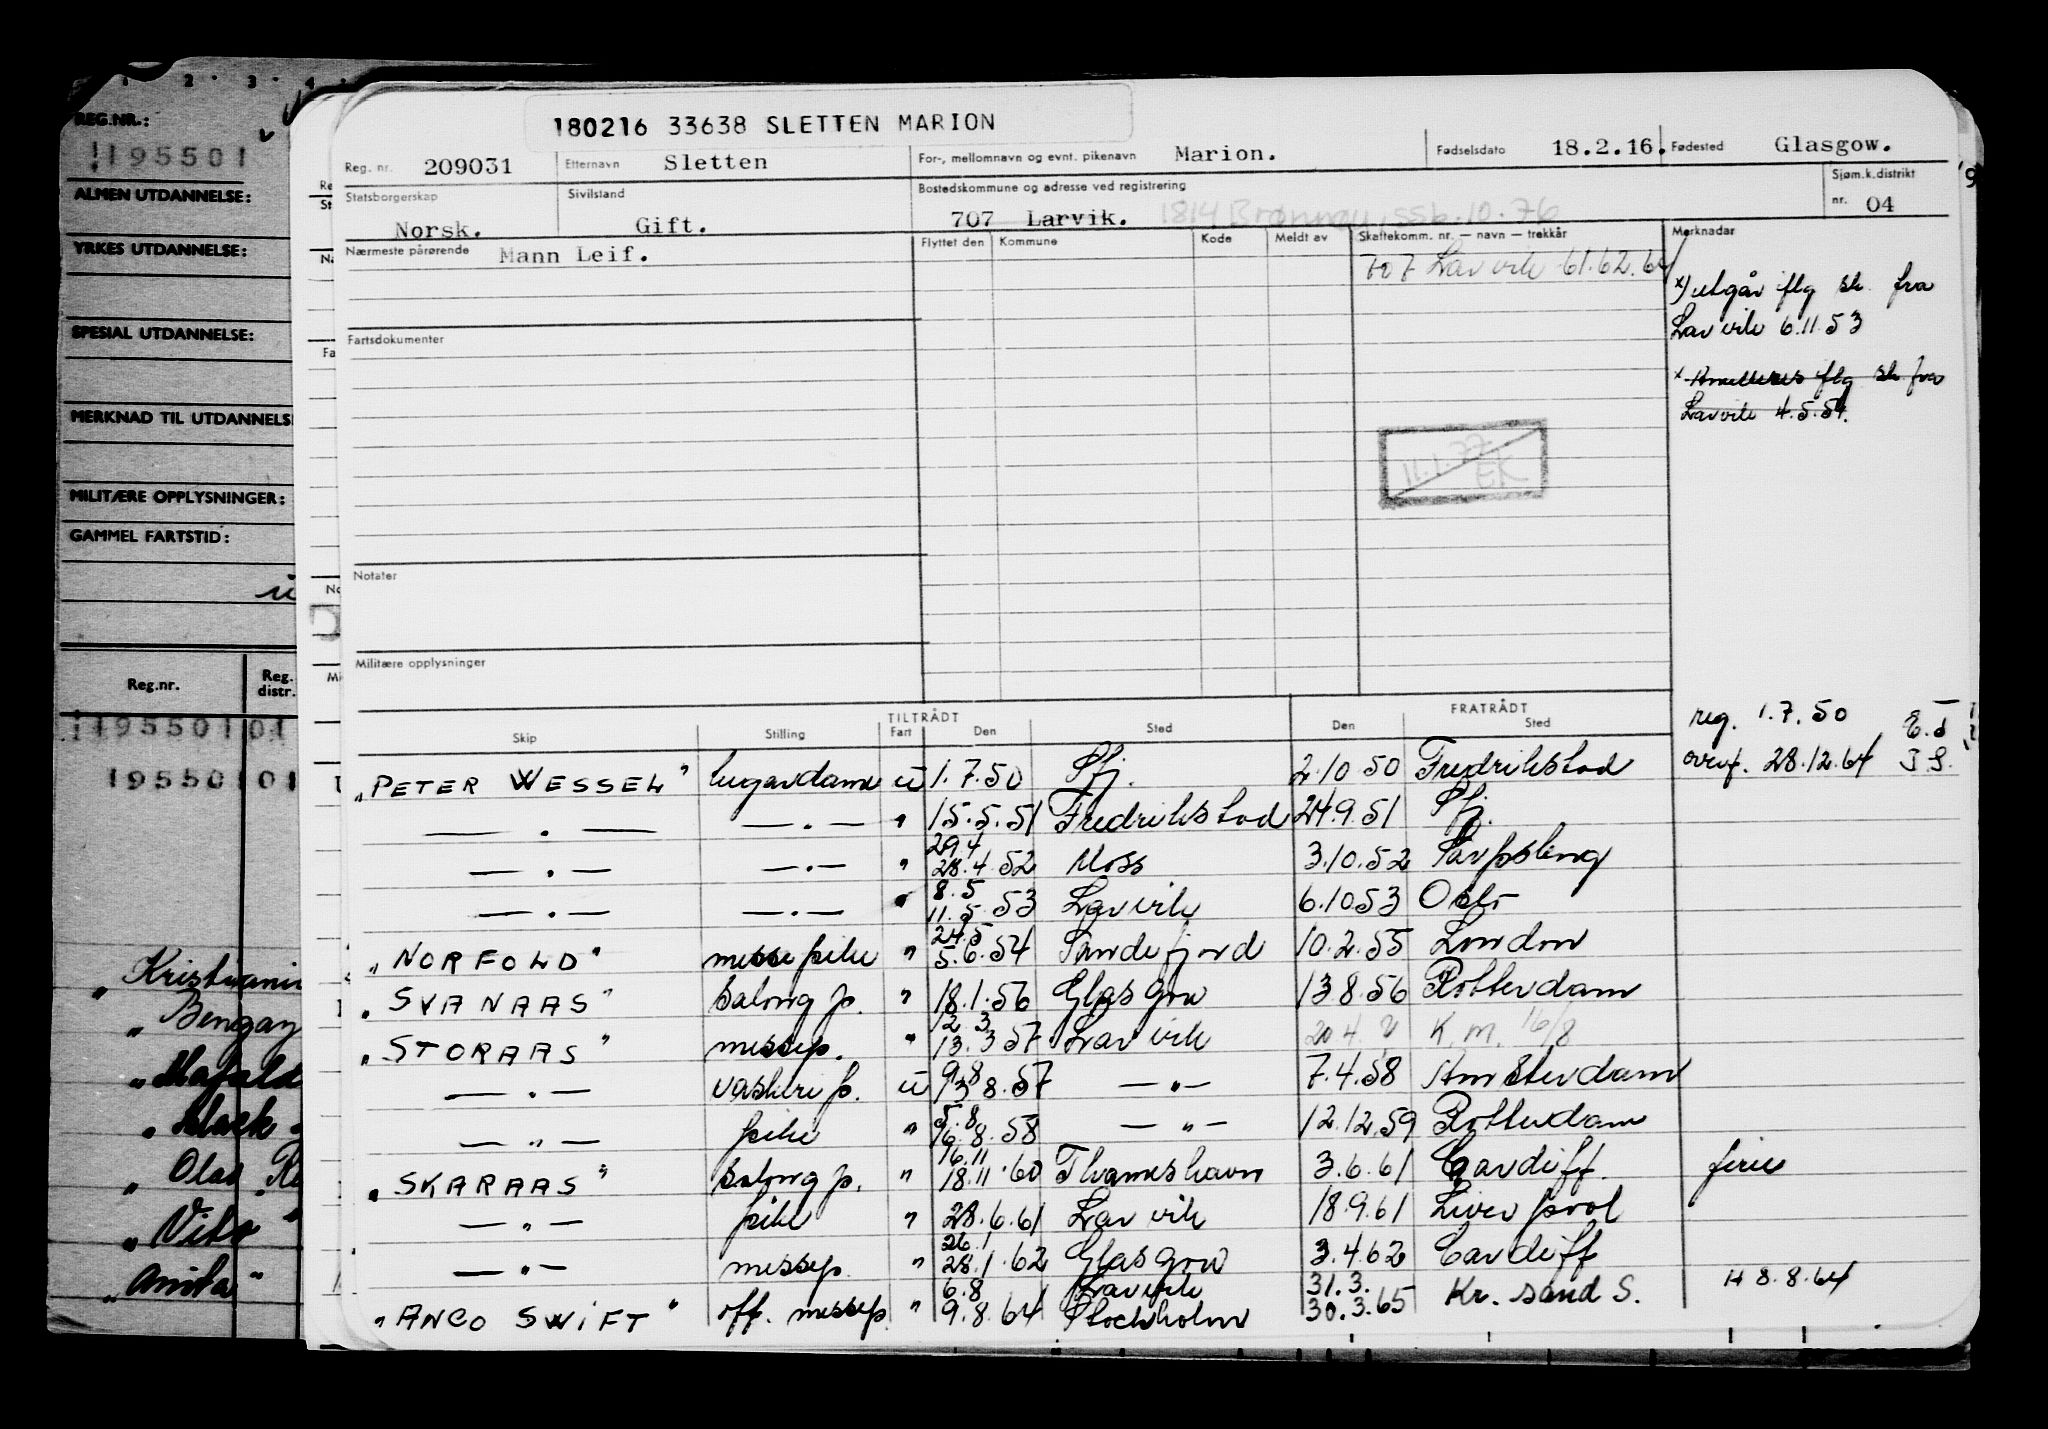 1 2 3 4
REG.NR.:
195501
ALMEN UTDANNELSE:
YRKES UTDANNELSE:
SPESIAL UTDANNELSE:
MERKNAD TIL UTDANNELS
MILITÆRE OPPLYSNINGER:
GAMMEL FARTSTID:
u
Reg.nr. Reg. distr.
195501 01
195501 01
„Kristiani
„Bengay
„Black
„Olav
„Vito"
„Anita"
180216 33638 SLETTEN MARION
Reg. nr. 209031 Etternavn Sletten For-, mellomnavn og evnt. pikenavn Marion. Fødselsdato 18.2.16. Fødested Glasgow.
Statsborgerskap Norsk. Sivilstand Gift. Bostedskommune og adresse ved registrering 707 Larvik. 1814 Brønnøy, ssb. 10.76 Sjøm.k.distrikt nr. 04
Nærmeste pårørende Mann Leif. Flyttet den Kommune Kode Meldt av Skattekomm. nr. — navn — trekkår Merknadar
707 Larvik 61.62.64
x) utgår flg sk. fra
Larvik 6.11.53
Fartsdokumenter
x Annulleres flg sk fra
Larvik 4.5.54.
11.1.77
EK
Notater
Militære opplysninger
TILTRÅDT FRATRÅDT
Skip Stilling Fart Den Sted Den Sted
reg. 1.7.50
overf. 28.12.64
„PETER WESSEL" lugardame u 1.7.50 Sfj. 2.10 50 Fredrikstad
— " — — " — " 15.5.51 Fredrikstad 24.9.51 Sfj.
— " — — " — " 29.4 28.4.52 Moss 3.10.52 Sarpsborg
— " — — " — " 8.5 11.5.53 Larvik 6.10.53 Oslo
„NORFOLD" messepike " 24.5 5.6.54 Sandefjord 10.2.55 London
„SVANAAS" salong p. " 18.1.56 Glasgow 13.8.56 Rotterdam
„STORAAS" messep. " 12 3 13.3.57 Larvik 20.4. K.M. 16/8
— " — vaskeri p. u 9.8 13 8.57 — " — 7.4.58 Amsterdam
— " — pike " 5.8 16.8.58 — " — 12.12.59 Rotterdam
„SKARAAS" salong p. " 16.11 18.11.60 Thamshavn 3.6.61 Cardiff. ferie
— " — pike " 28.6.61 Larvik 18.9.61 Liverpool
— " — messep. " 26.1 28.1.62 Glasgow 3.4.62 Cardiff
„ANCO SWIFT" off. messep. " 6.8 9.8.64 Larvik Stockholm 31.3. 30.3.65 Kr. sand S. H 8.8.64